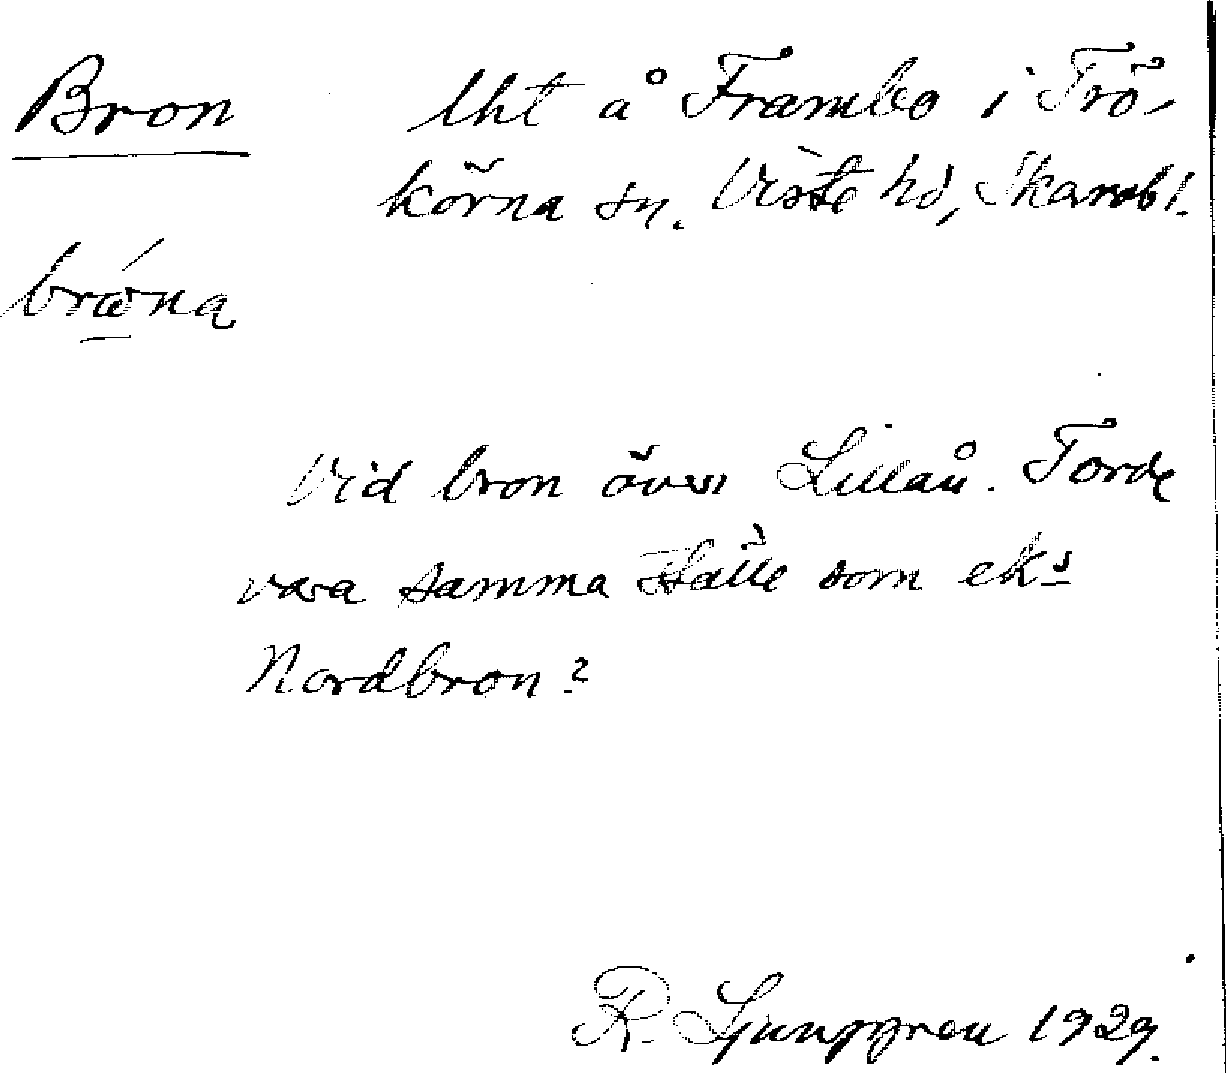 Bron lht å Frambo i Trö-
körna sn. Viste hd, Skarabl.
bró̤na
Vid bron över Lillån. Torde
vara samma ställe som eks
Nordbron?
R. Ljunggren 1929.